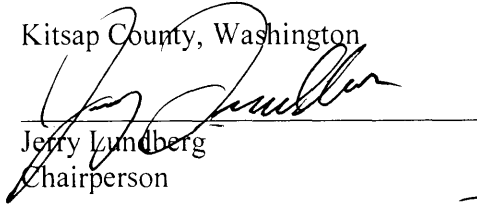 Kitsap County, Washington
Jerry Lundberg
Chairperson